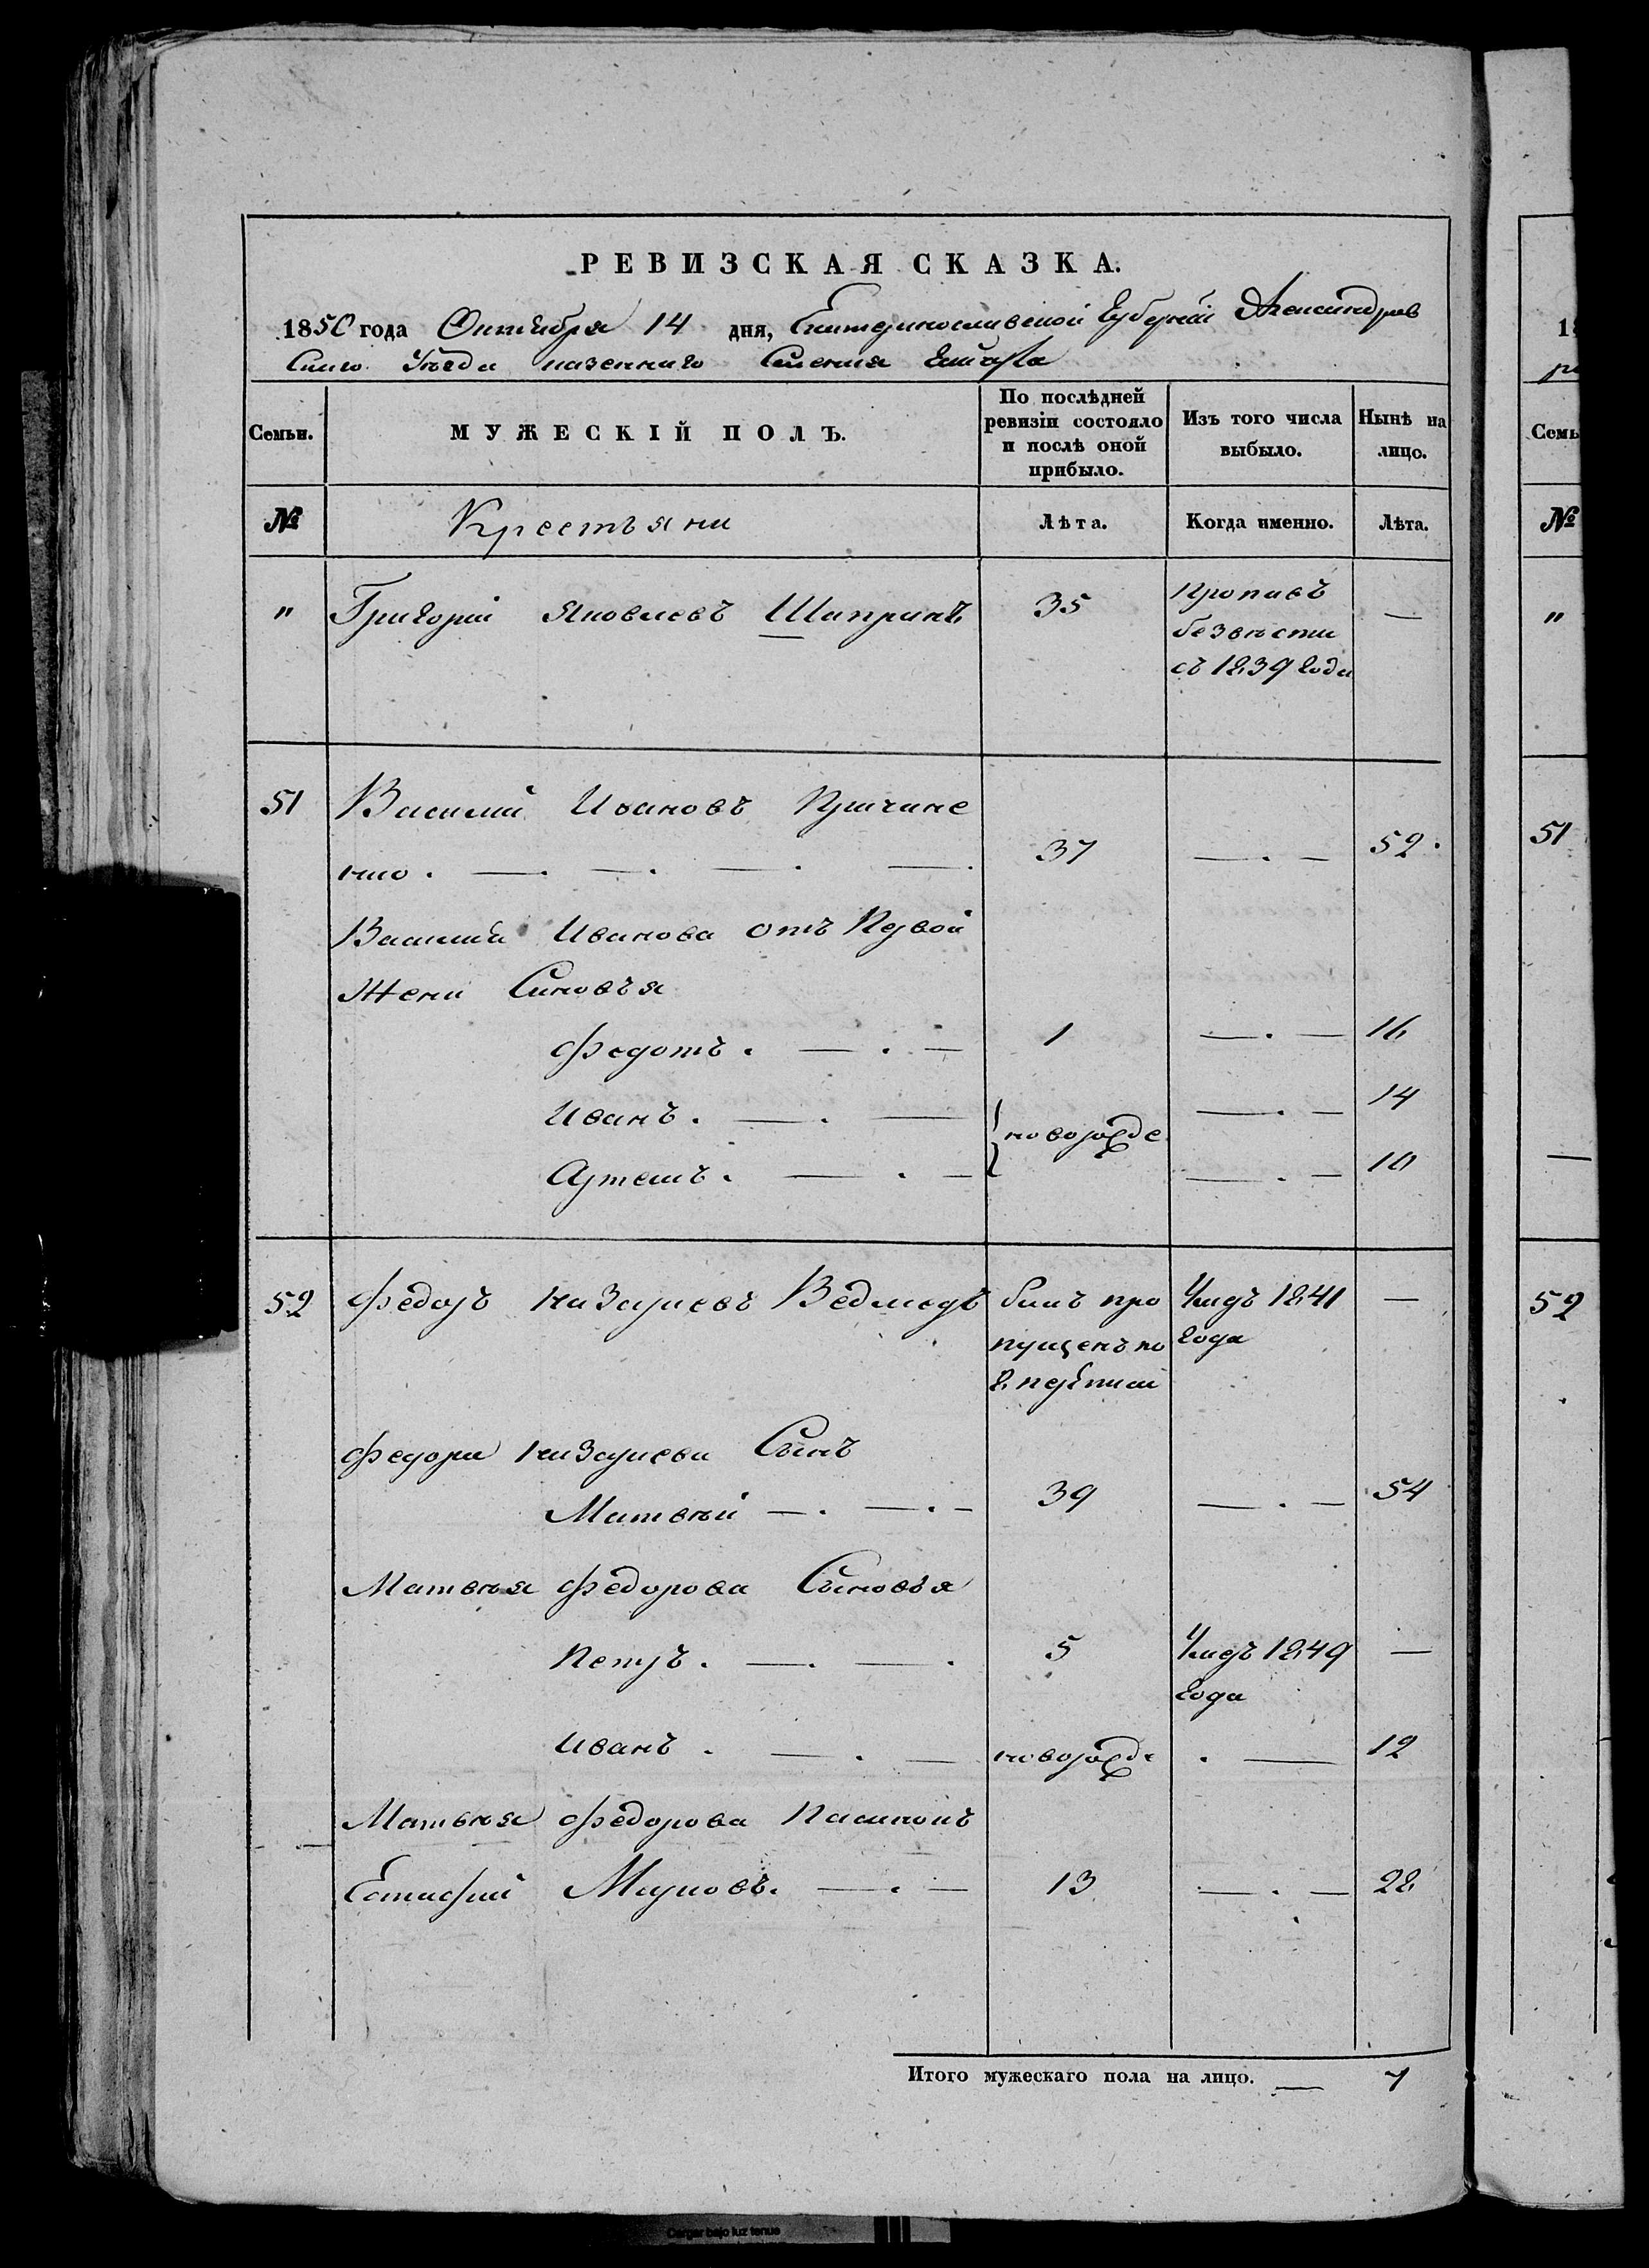 РЕВИЗСКАЯ СКАЗКА.
1850 года Октября 14 дня, Екатеринославской Губерніи Александров
скаго Уезда казеннаго Селенія
Семьи.
МУЖЕСКІЙ ПОЛЪ.
По послѣдней
ревизіи состояло
и послѣ оной
прибыло.
Изъ того числа
выбыло.
Нынѣ на
лицо.
№ Крестьяни Лѣта. Когда именно. Лѣта.
" Григорій Яковлевъ Шапранъ 35 Пропавъ —
безвѣсти
съ 1839 года
51 Василий Ивановъ Кричине
нко. — . — . — . — . 37 — . — 52.
Василия Иванова отъ Первой
Жени Синовъя
Федотъ. — . — 1 — . — 16
Иванъ. — . — новорожде — . — 14
Артемъ. — . — — . — 10
52 Федоръ Назарievъ Ведмедь билъ про Умеръ 1841 —
пущенъ по года
8 переписи
Федора Назариева Сынъ
Матвѣй — . — . — 39 — . — 54
Матвѣя Федорова Сыновъя
Петръ. — . — . 5 Умеръ 1849 —
года
Иванъ . — . — новорожде . — 12
Матвѣя Федорова Пасинокъ
Естафий Марковъ. — . — 13 — . — 28
Итого мужескаго пола на лицо. — 7
18
Семь
№
"
51
—
52
Cargar bajo luz tenue